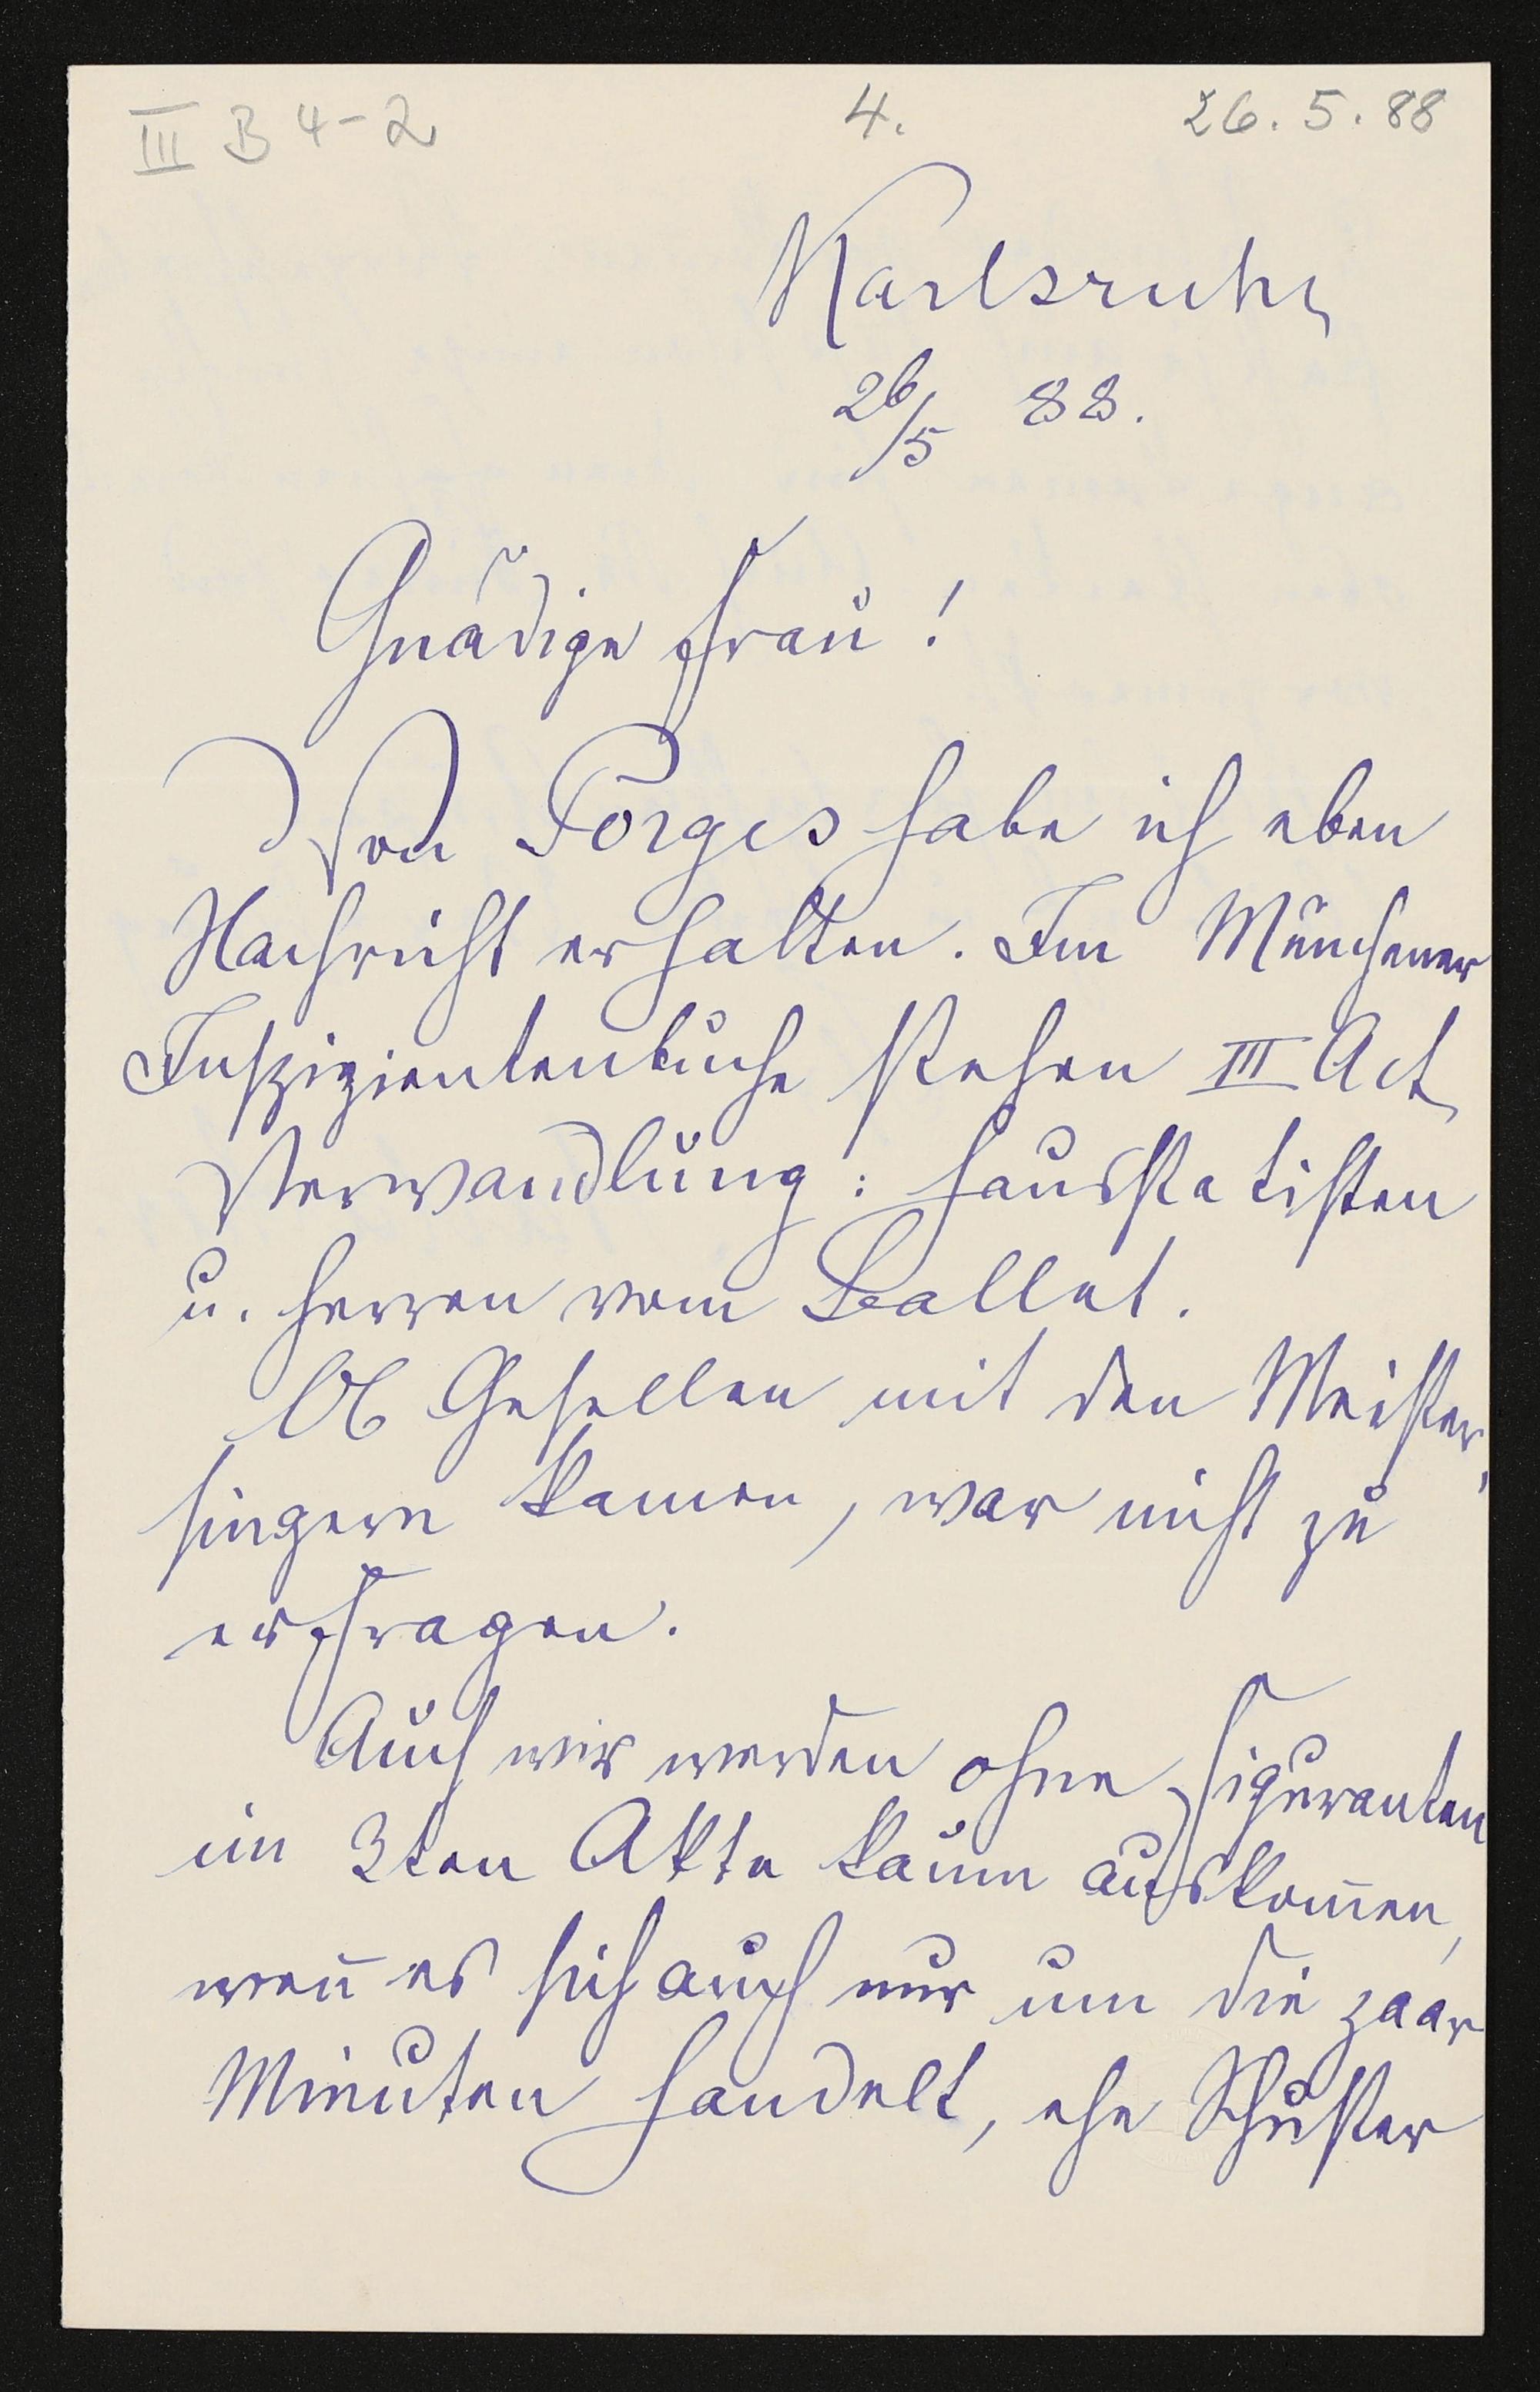 III B 4-2 4. 26.5.88
Karlsruhe
26/5 88.
Gnädige Frau!
Von Porges habe ich eben
Nachricht erhalten. Im Münchener
Inspizientenbuche stehen III Act
Verwandlung: Hausstatisten
u. Herren vom Ballet.
Ob Gesellen mit den Meister,
singern kamen, war nicht zu
erfragen.
Auch wir werden ohne Figuranten
im 3ten Akte kaum auskom̅en,
wen̅ es sich auch nur um die paar
Minuten handelt, ehe Schuster